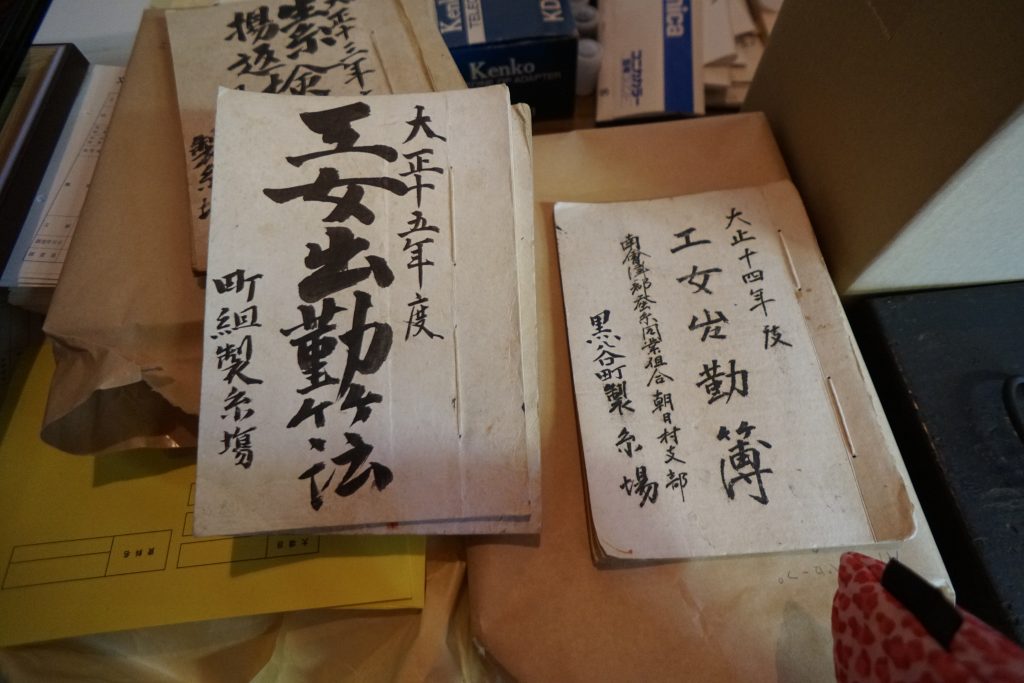 大正十三年
揚返
製糸場
大正十五年度
工女出勤簿
町組製糸塲
大正十四年度
工女出勤簿
南會津郡蚕糸同業組合朝日村支部
黒谷町製糸場
Kenko
ADAPTER
資料名
大項目